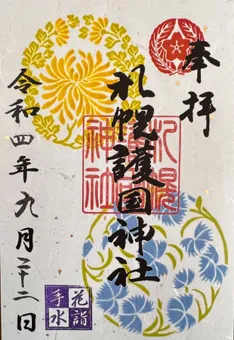 奉拝
札幌護国神社
令和四年九月二十二日
札幌
護国
神社
花詣
手水